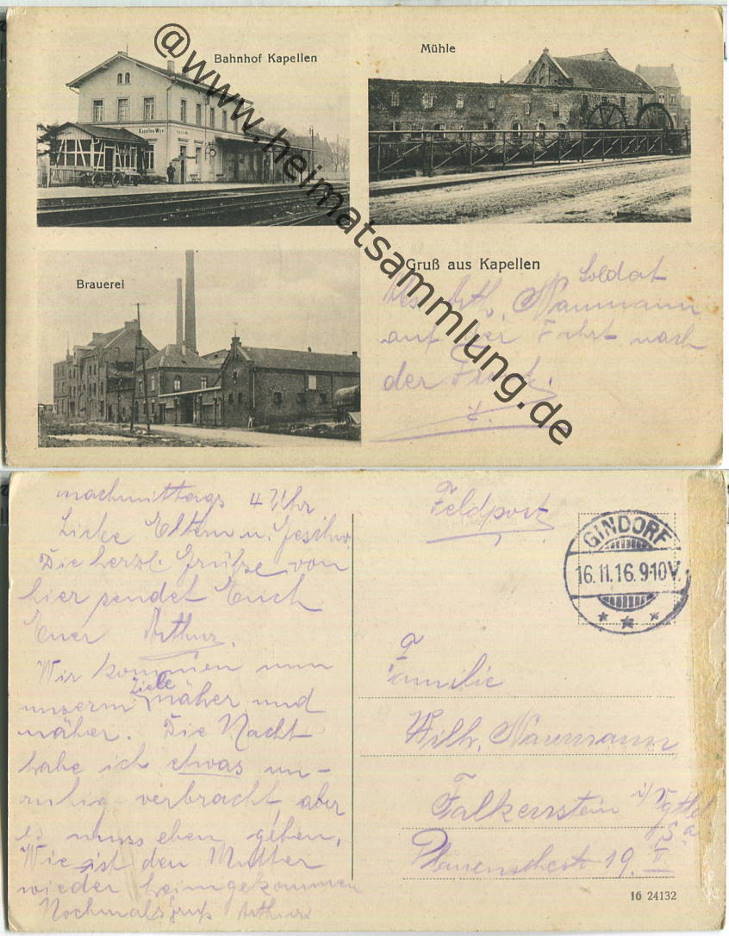 Bahnhof Kapellen
Mühle
@www.heimatsammlung.de
Brauerei
Gruß aus Kapellen
Soldat
Arth. Naumann
auf der Fahrt nach
der Front.
nachmittags 4 Uhr
Liebe Eltern u. Geschw.
Die herzl. Grüsse von
hier sendet Euch
Euer Arthur.
Wir kommen nun
unserm Ziele näher und
näher. Die Nacht
habe ich etwas un-
ruhig verbracht aber
es muss eben gehen.
Wie ist den Mutter
wieder heimgekommen
Nochmals Gruß Arthur
Feldpost
GINDORF
16.11.16.9-10V.
Familie
Wilh. Naumann
Falkenstein i/Vgtld
19. II
16 24132